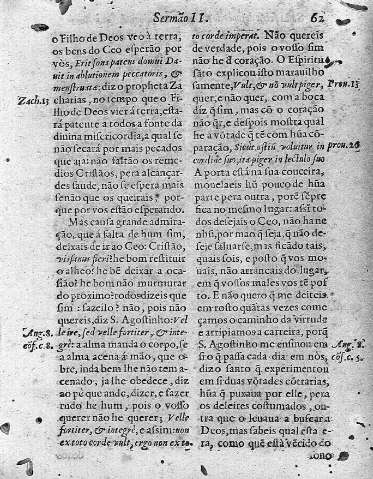 Sermão II. 62
o Filho de Deos veo à terra,
os bens do Ceo esperão por
vòs, Erit fons patens domui Da-
uit in ablutionem peccatoris, &
menstruatæ: diz o propheta Za
Zach. 13 charias, no tempo que o Fi-
lho de Deos vier à terra, esta-
rá patente a todos a fonte da
diuina misericordia, a qual se
não secará por mais pecados
que aja: não faltão os reme-
dios Cristãos, pera alcançar-
des saude, não se espera mais
senão que os queirais: por-
que por vos estão esperando.
Mas causa grande admira-
ção, que à falta de hum sim,
deixais de ir ao Ceo: Cristão,
vis sanus fieri? he bom restituir
o alheo? he bẽ deixar a oca-
sião? he bom não murmurar
do proximo? todos dizeis que
sim: fazeilo? não, pois não
quereis, diz S. Agostinho: Vel
Aug. 8. le ire, sed velle fortiter, & inte-
cõf. c. 8. grè: a alma manda o corpo, se
a alma acena á mão, que o-
bre, inda bem lhe não tem a-
cenado, ja lhe obedece, diz
ao pè que ande, dizer, e fazer
tudo he hum, pois o vosso
querer não he querer; Velle
fortiter, & integrè, e assim: non
ex toto corde vult, ergo non ex to-
to corde imperat. Não quereis
de verdade, pois o vosso sim
não he d coração. O Espiritu
sãto explicou isto marauilho
samente, Vult, & nõ vult piger, Prou. 13
quer, e não quer, com a boca
diz q̃ sim, mas cõ o coração
não q̃r, e despois mostra qual
he a võtade q̃ tẽ com hũa cõ-
paração, Sicut ostiũ voluitur in prou. 26
cardine suo, ita piger in lectulo suo
A porta està na sua couceira,
moueilaeis hũ pouco de hũa
parte pera outra, porẽ sẽpre
fica no mesmo lugar: assi to-
dos desejais o Ceo, não ha ne
nhũ, por mao q̃ seja, q̃ não de-
seje saluarse, mas ficado tais,
quais sois, e posto q̃ vos mo-
uais, não arrancais do lugar,
em q̃ vossos males vos tẽ pos
to. E não quero q̃ me deiteis
em rosto quãtas vezes come
çamos o caminho da virtude
e arripiamos a carreira, porq̃
S. Agostinho me ensinou em Aug. 8.
isto q̃ passa cada dia em nòs, cõf. c. 5.
dizo santo q̃ experimentou
em si duas võtades cõtrarias,
hũa q̃ puxaua por elle, pera
os deleites costumados, ou-
tra que o leuaua a buscar a
Deos, mas sabeis qual esta e-
ra, como que està vẽcido do
sono